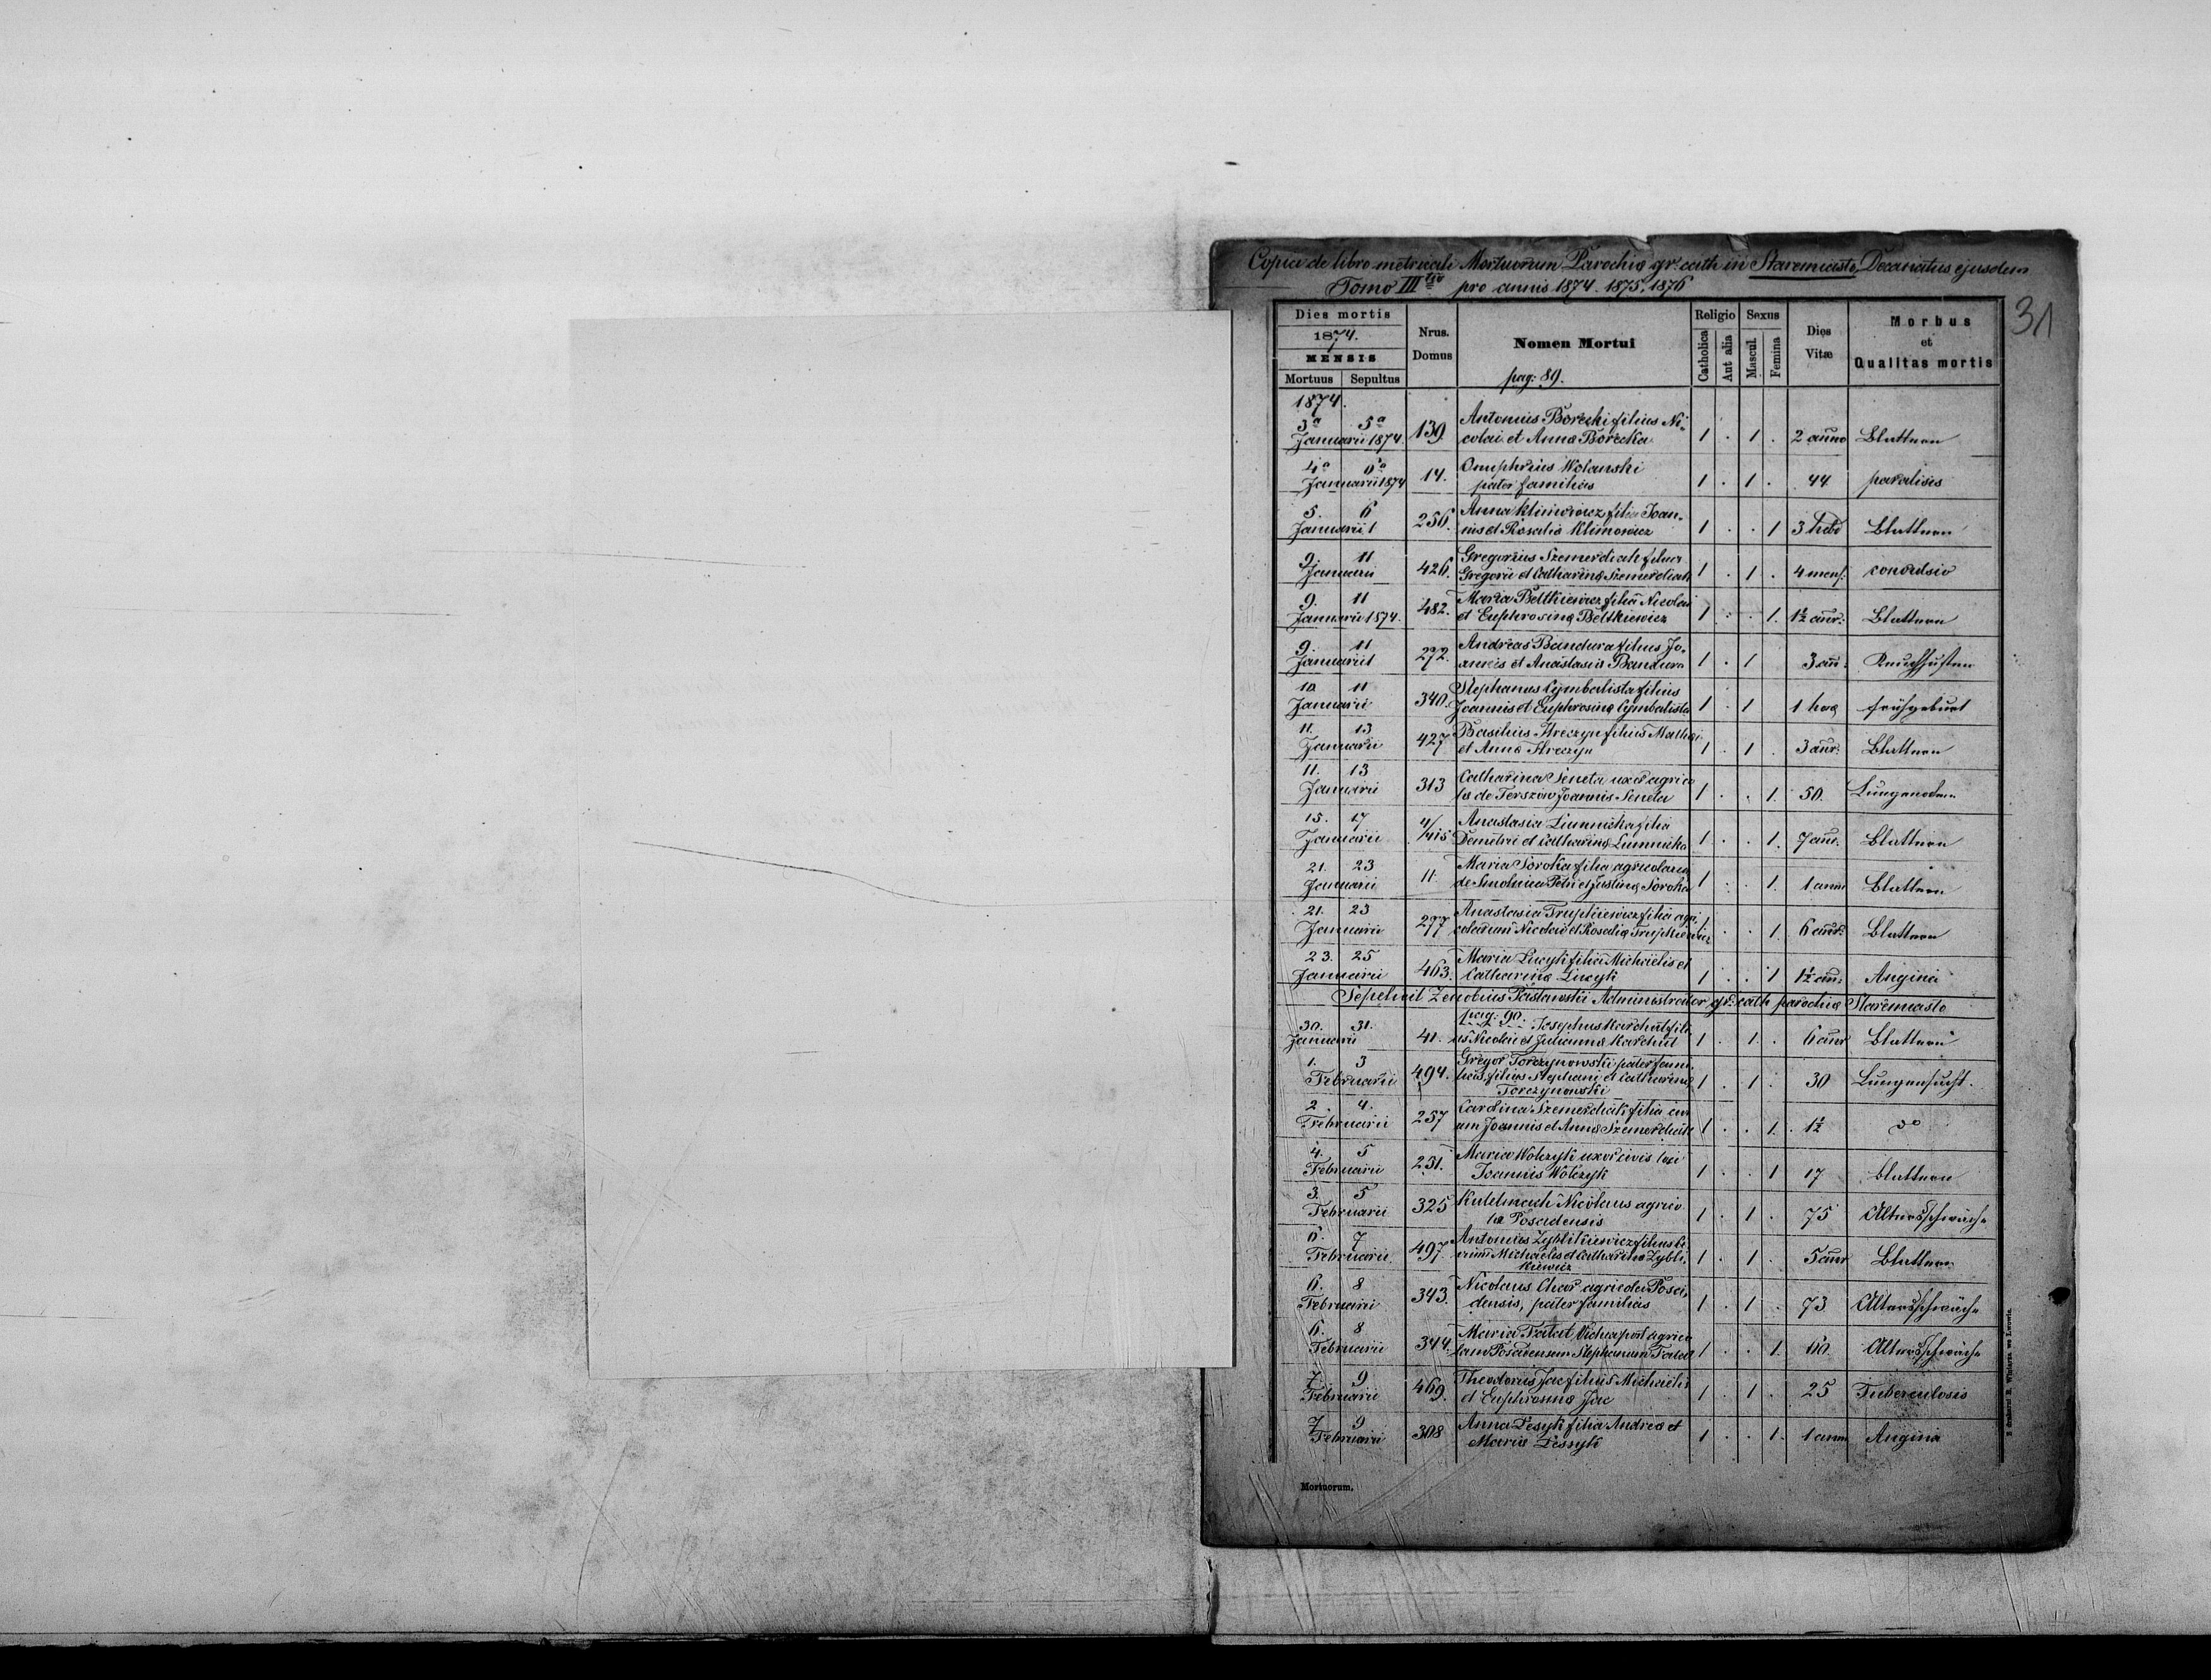 Copia de libro metricali Mortuorum Parochiæ gr. cath in Staremiasto, Decanatus ejusdem
Tomo III tio pro annis 1874. 1875, 1876
31
Dies mortis 1874. MENSIS Mortuus Sepultus Nrus. Domus Nomen Mortui pag: 89. Religio Catholica Aut alia Sexus Mascul. Femina Dies Vitæ Morbus et Qualitas mortis
1874.
3a 5a Antonius Borecki filius Ni-
Januarii 1874. 139. colai et Annæ Borecka 1 . 1 . 2 anno Blattern
4a 6a Onuphrius Wolanski
Januarii 1874 14. pater familias 1 . 1 . 44 paralisis
5. 6 Anna Klimowicz filia Joan-
Januarii 256. nis et Rosalia Klimowicz 1 . . 1 3 hebd Blattern
9. 11 Gregorius Szemerdiak filius
Januarii 426. Gregorii et Catharinæ Szemerdiak 1 . 1 . 4 mens. convulsio
9. 11 Maria Beltkiewicz filia Nicolai
Januarii 1874. 482. et Euphrosinæ Beltkiewicz 1 . . 1. 1½ Blattern
9. 11 Andreas Bandura filius Jo-
Januarii 272. annis et Anastasiæ Bandura 1 . 1 3 an: Keuchhusten
10 11 Stephanus Cymbalista filius
Januarii 340. Joannis et Euphrosinæ Cymbalista 1 . 1 1 hora Frühgeburt
11. 13 Basilius Hreczyn filius Mathæi
Januarii 427 et Annæ Hreczyn 1 . 1 . 3 Blattern
11. 13 Catharina Seneta uxor agrico
Januarii 313 læ de Terszow Joannis Seneta 1 . . 1. 50.
15. 17 4/ Anastasia Linnicka filia
Januarii 415 Demetrii et Catharinæ 1 . . 1. 7 Blattern
21. 23 Maria Soroka filia agricolarum
Januarii 11. de Smolnica Petri et Justinæ Soroka 1 . . 1. 1 anni Blattern
21. 23 Anastasia Trupkiewicz filia agri
Januarii 277 colarum Nicolai et Rosaliæ Trupkiewicz 1 . . 1. 6 Blattern
23. 25 Maria Lucyk filia Michaelis et
Januarii 463. Catharinæ Lucyk 1 . . 1 1½ an: Angina
Sepelivit Zenobius Paslawski Administrator gr: cath parochiæ Staremiasto
pag: 90.
30. 31. Josephus Karchut fili
Januarii 41. us Nicolai et Juliannæ Karchut 1 . 1. . 6 Blattern
1. 3 Gregor Torczynowski pater fami-
Februarii 494. lias, filius Stephani et Catharinæ 1 . 1 . 30 Lungensucht.
Torczynowski
2. 4. Carolina Szemerdiak filia civi
Februarii 257 um Joannis et Annæ Szemerdiak 1 . . 1. 1½ do
4. 5 Maria Wolczyk uxor civis loci
Februarii 231. Joannis Wolczyk 1 . . 1 17 blattern
3. 5 Kulelmach Nicolaus agrico
Februarii 325 la Posadensis 1 . 1 . 75 Altersschwäche
6. 7 Antonius Zyblikiewicz filius ci
Februarii 497. vium Michaelis et Catharina Zybli- 1 . 1 . 5 Blattern
kiewicz
6. 8 Nicolaus agricola Posa-
Februarii 343. densis, pater familias 1 . 1 . 73 Altersschwäche
6. 8 Maria Tatat Vidua post agrico
Februarii 344. lam Posadensem Stephanum Tatat 1 . . 1. 60. Altersschwäche
7. 9 Theodorus Jac filius Michaelis
Februarii 469. et Euphrosinæ Jac 1 . 1 . 25 Tuberculosis
7 9 Anna Lesyk filia Andreæ et
Februarii 308 Mariæ Lessyk 1 . . 1. 1 anni Angina
Mortuorum.
Z drukarni E. Winiarza we Lwowie.